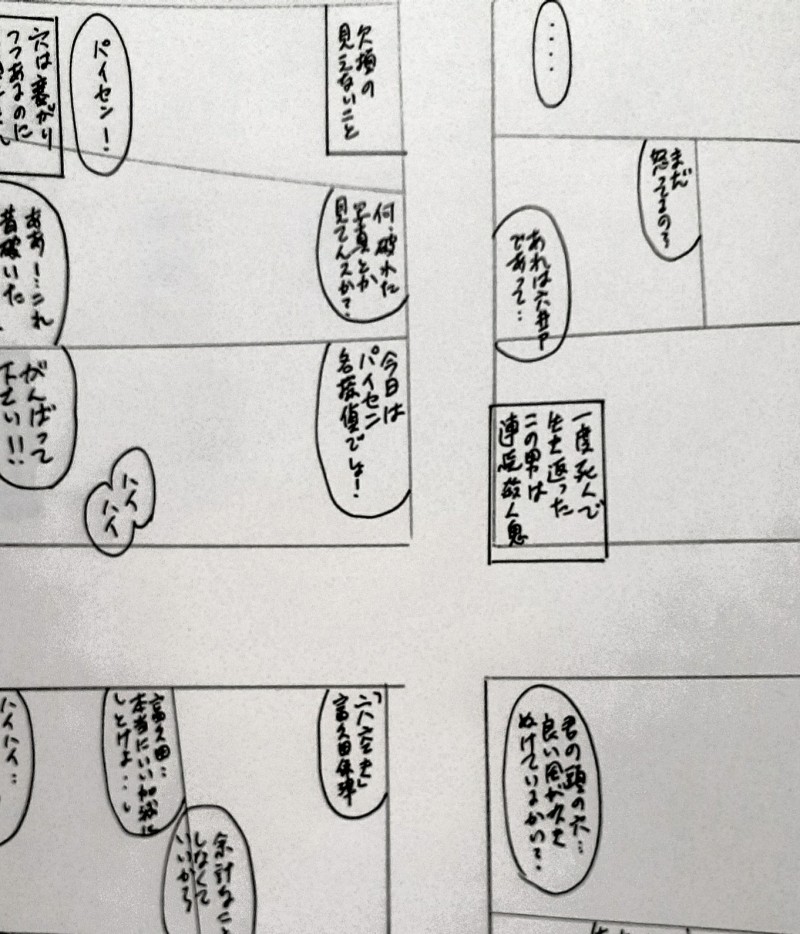 ・・・・
まだ
怒ってるの？
あれは穴井戸
であって…
一度死んで
生き返った
この男は
連続殺人鬼
欠損の
見えないこと
パイセン！
穴は塞がり
つつあるのに
何、破れた
写真とか
見てんスか？
ああー…これ
昔破いた
今日は
パイセン
名探偵でしょ！
ハイ
ハイ
がんばって
下さい!!
君の頭の穴…
良い風が吹き
ぬけているかい？
「穴空き」
富久田保津
富久田…
本当にいい加減に
しとけよ…
余計なこと
しなくて
いいから
ハイハイ…